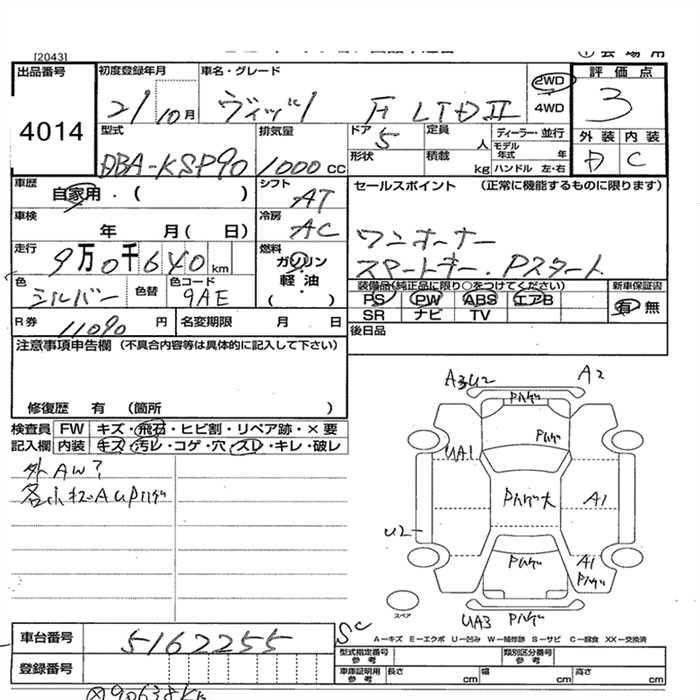 [2043]
出品番号
4014
初度登録年月
21 10 月
車名・グレード
ヴィッツ F LTDⅡ
2WD
4WD
評価点
3
外装 内装
D C
型式
DBA-KSP90
排気量
1000 CC
ドア
5
定員
人
形状
積載
kg
ディーラー・並行
モデル年式 年
ハンドル 左・右
車歴
自家用・( )
シフト
AT
車検
年 月( 日)
冷房
AC
走行
9万0千640 km
燃料
ガソリン
軽油
( )
色
シルバー
色替
色コード
9AE
R券
11090 円
名変期限 月 日
セールスポイント (正常に機能するものに限ります)
ワンオーナー
スマートキー. Pスタート
装備品(純正品に限り○をつけてください)
新車保証書
PS PW ABS エアB
SR ナビ TV
有 無
後日品
注意事項申告欄 (不具合内容等は具体的に記入して下さい)
修復歴 有 (箇所 )
検査員記入欄
FW キズ・飛石・ヒビ割・リペア跡・×要
内装 キズ・汚レ・コゲ・穴・スレ・キレ・破レ
外AW?
A3U2
A2
Pハゲ
Pハゲ
UA1
Pハゲ大
A1
U2
Pハゲ
A1
Pハゲ
UA3
Pハゲ
スペア
SC
A－キズ E－エクボ U－凹み W－補修跡 S－サビ C－腐食 XX－交換済
車台番号
5162255
登録番号
型式指定番号
参考
類別区分番号
参考
車庫証明用
参考
長さ cm
幅 cm
高さ cm
90638Km